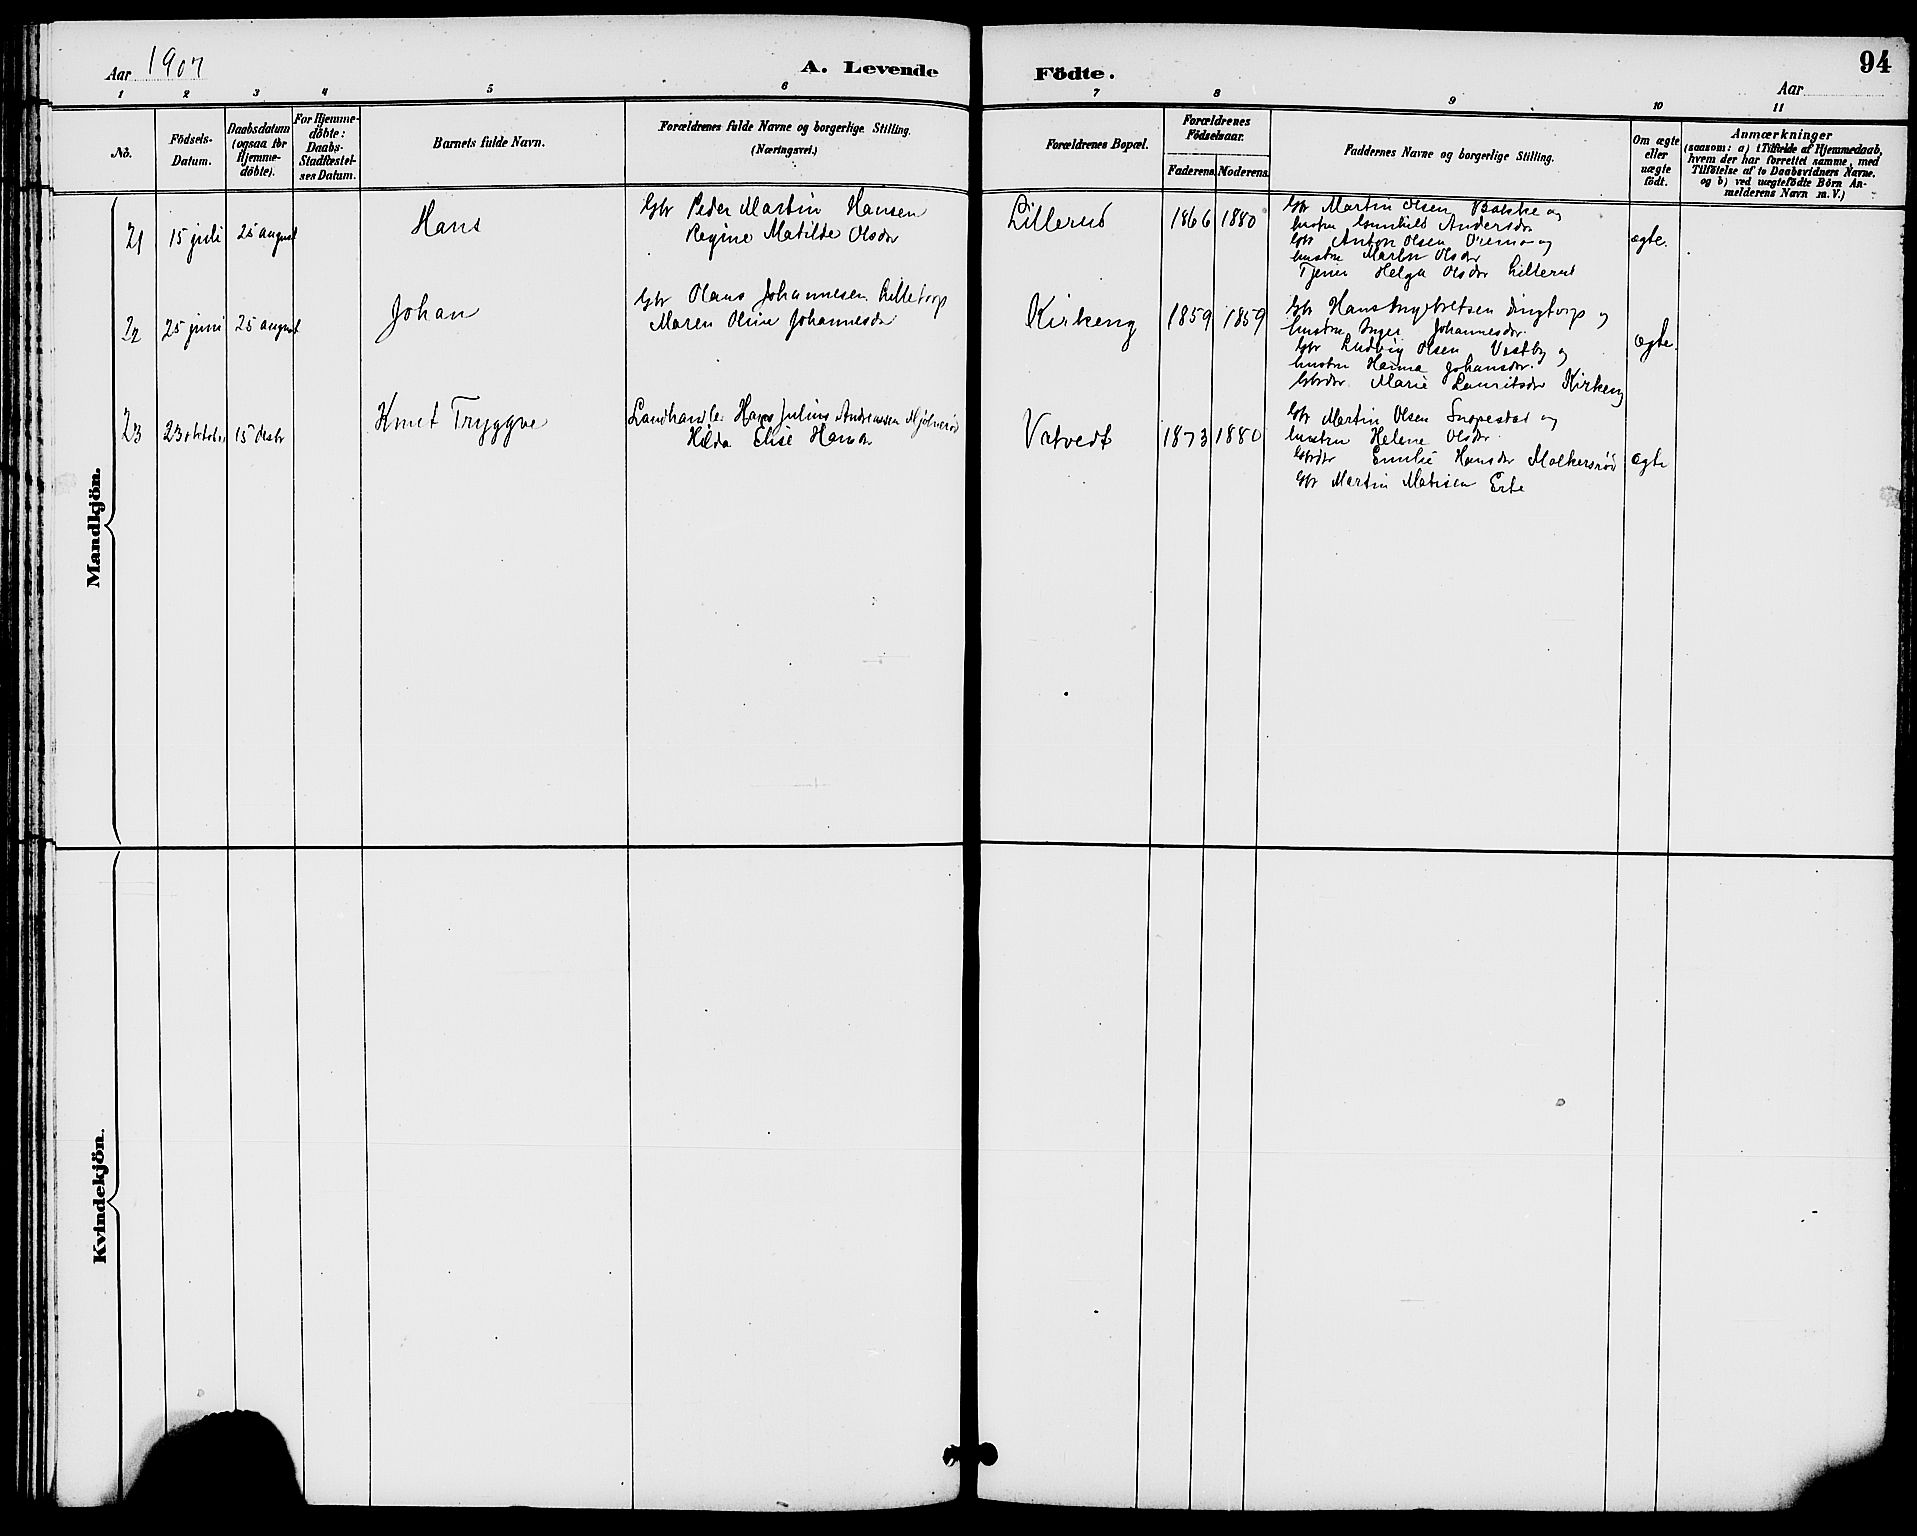 Aar 1907
A. Levende Födte.
94
Aar
1 2 3 4 5 6 7 8 9 10 11
No.
Födsels-Datum.
Daabsdatum (ogsaa for Hjemme-döbte).
For Hjemme-döbte: Daabs-Stadfæstel-ses Datum.
Barnets fulde Navn.
Forældrenes fulde Navne og borgerlige Stilling. (Næringsvei.)
Forældrenes Bopæl.
Forældrenes Födselsaar.
Faderens. Moderens.
Faddernes Navne og borgerlige Stilling.
Om ægte eller uægte födt.
Anmærkninger
(saasom: a) i Tilfælde af Hjemmedaab,
hvem der har forrettet samme, med
Tilföielse af to Daabsvidners Navne.
og b) ved uægtefödte Börn An-
melderens Navn m. V.)
Mandkjön.
21 15 juli 25 august Hans
Gbr Peder Martin Hansen
Regine Matilde Olsdr
Lillerud 1866 1880
Gbr Martin Olsen Bakke og
hustru Gunhild Andersdr
Gbr Anton Olsen og
hustru Olsdr
Tjener Helga Olsdr Lillerud
ægte.
22 25 juni 25 august Johan
Gbr Olaus Johannesen Lilletorp
Maren Oline Johannesdr
Kirkeng 1859 1859
Gbr Hans og
hustru Inger Johannesdr.
Gbr Ludvig Olsen Vestby og
hustru Hanna Johansdr.
Gbrdr. Marie Lauritsdr Kirkeng
ægte.
23 23 oktober 15 decbr Knut Tryggve
Landhandler Hans Julius Andreassen
Hilda Elise Hansdr
Vatvedt 1873 1880
Gbr Martin Olsen og
hustru Helene Olsdr.
Gbrdtr Emilie Hansdr
Gbr Martin Matisen Erte
ægte
Kvindekjön.